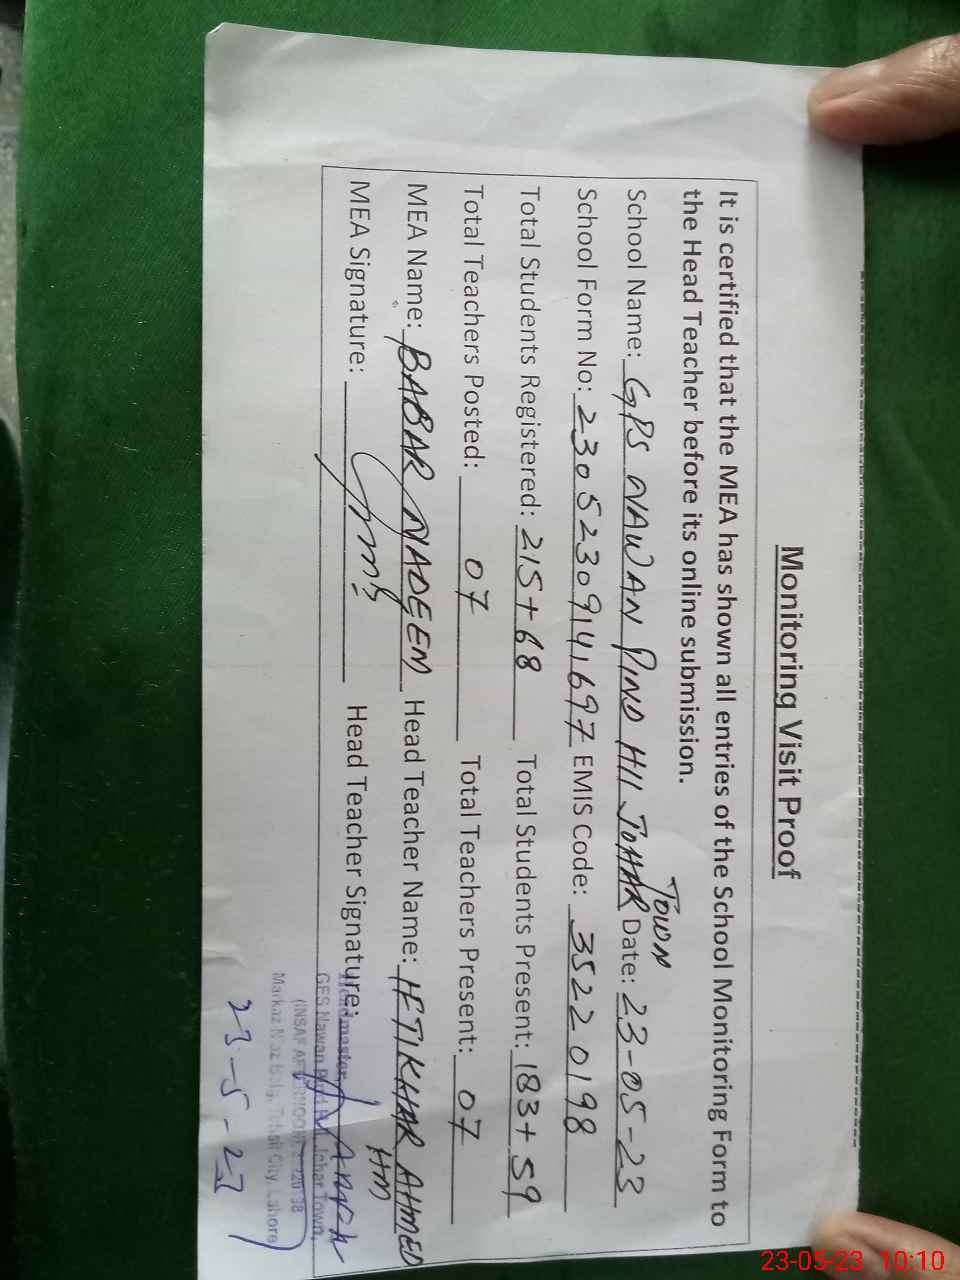 Monitoring Visit Proof
It is certified that the MEA has shown all entries of the School Monitoring Form to
the Head Teacher before its online submission.
School Name: GPS NAWAN PIND HII JOHAR TOWN Date: 23-05-23
School Form No: 23052309141697 EMIS Code: 35220198
Total Students Registered: 215+68 Total Students Present: 183+59
Total Teachers Posted: 07 Total Teachers Present: 07
MEA Name: BABAR NADEEM Head Teacher Name: IFTIKHAR AHMED
HM
MEA Signature: Head Teacher Signature:
Headmaster
Nawan Johar Town,
(INSAF
Markaz City, Lahore
23-5-23
23-05-23 10:10